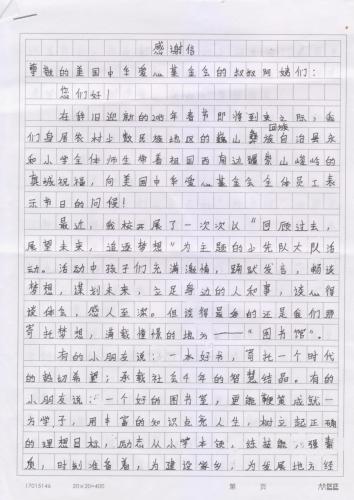 感谢信
尊敬的美国中华爱心基金会的叔叔阿姨们:
您们好!
在辞旧迎新的2015年春节即将到来之际,我
回族
们身居农村少数民族地区的巍山彝族自治县永
和小学全体师生带着祖国西南边疆崇山峻岭的
真诚祝福,向美国中华爱心基金会全体员工表
示节日的问候!
最近,我校开展了一次次以“回顾过去,
展望未来,追逐梦想”为主题的少先队大队活
动。活动中孩子们充满激情,踊跃发言,畅谈
梦想,谋划未来,立足身边的人和事,谈心得
谈体会,感人至深。但谈得最多的还是我们那
寄托梦想,满载憧憬的地方——“图书馆”。
有的小朋友说:一本好书,寄托一个时代
的热切希望;承载社会个年的智慧结晶。有的
小朋友说:一个好的图书室,更能鞭策成就一
为学子,用丰富的知识点亮人生,树立起正确
的理想目标,励志从小学本领,练技能,强素
质,时刻准备着,为建设家乡,为发展地方经
17015146 20×20=400 第 页